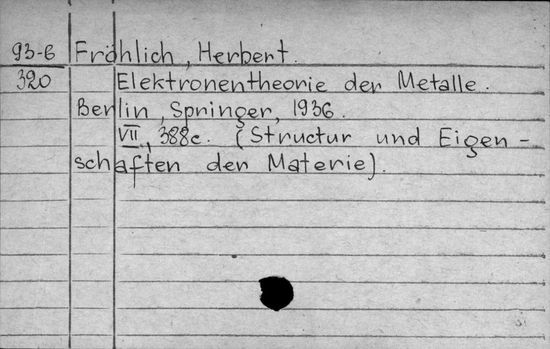 93-6 Fröhlich, Herbert.
320 Elektronentheorie der Metalle.
Berlin, Springer, 1936.
VII, 388c. (Structur und Eigen-
schaften der Materie).